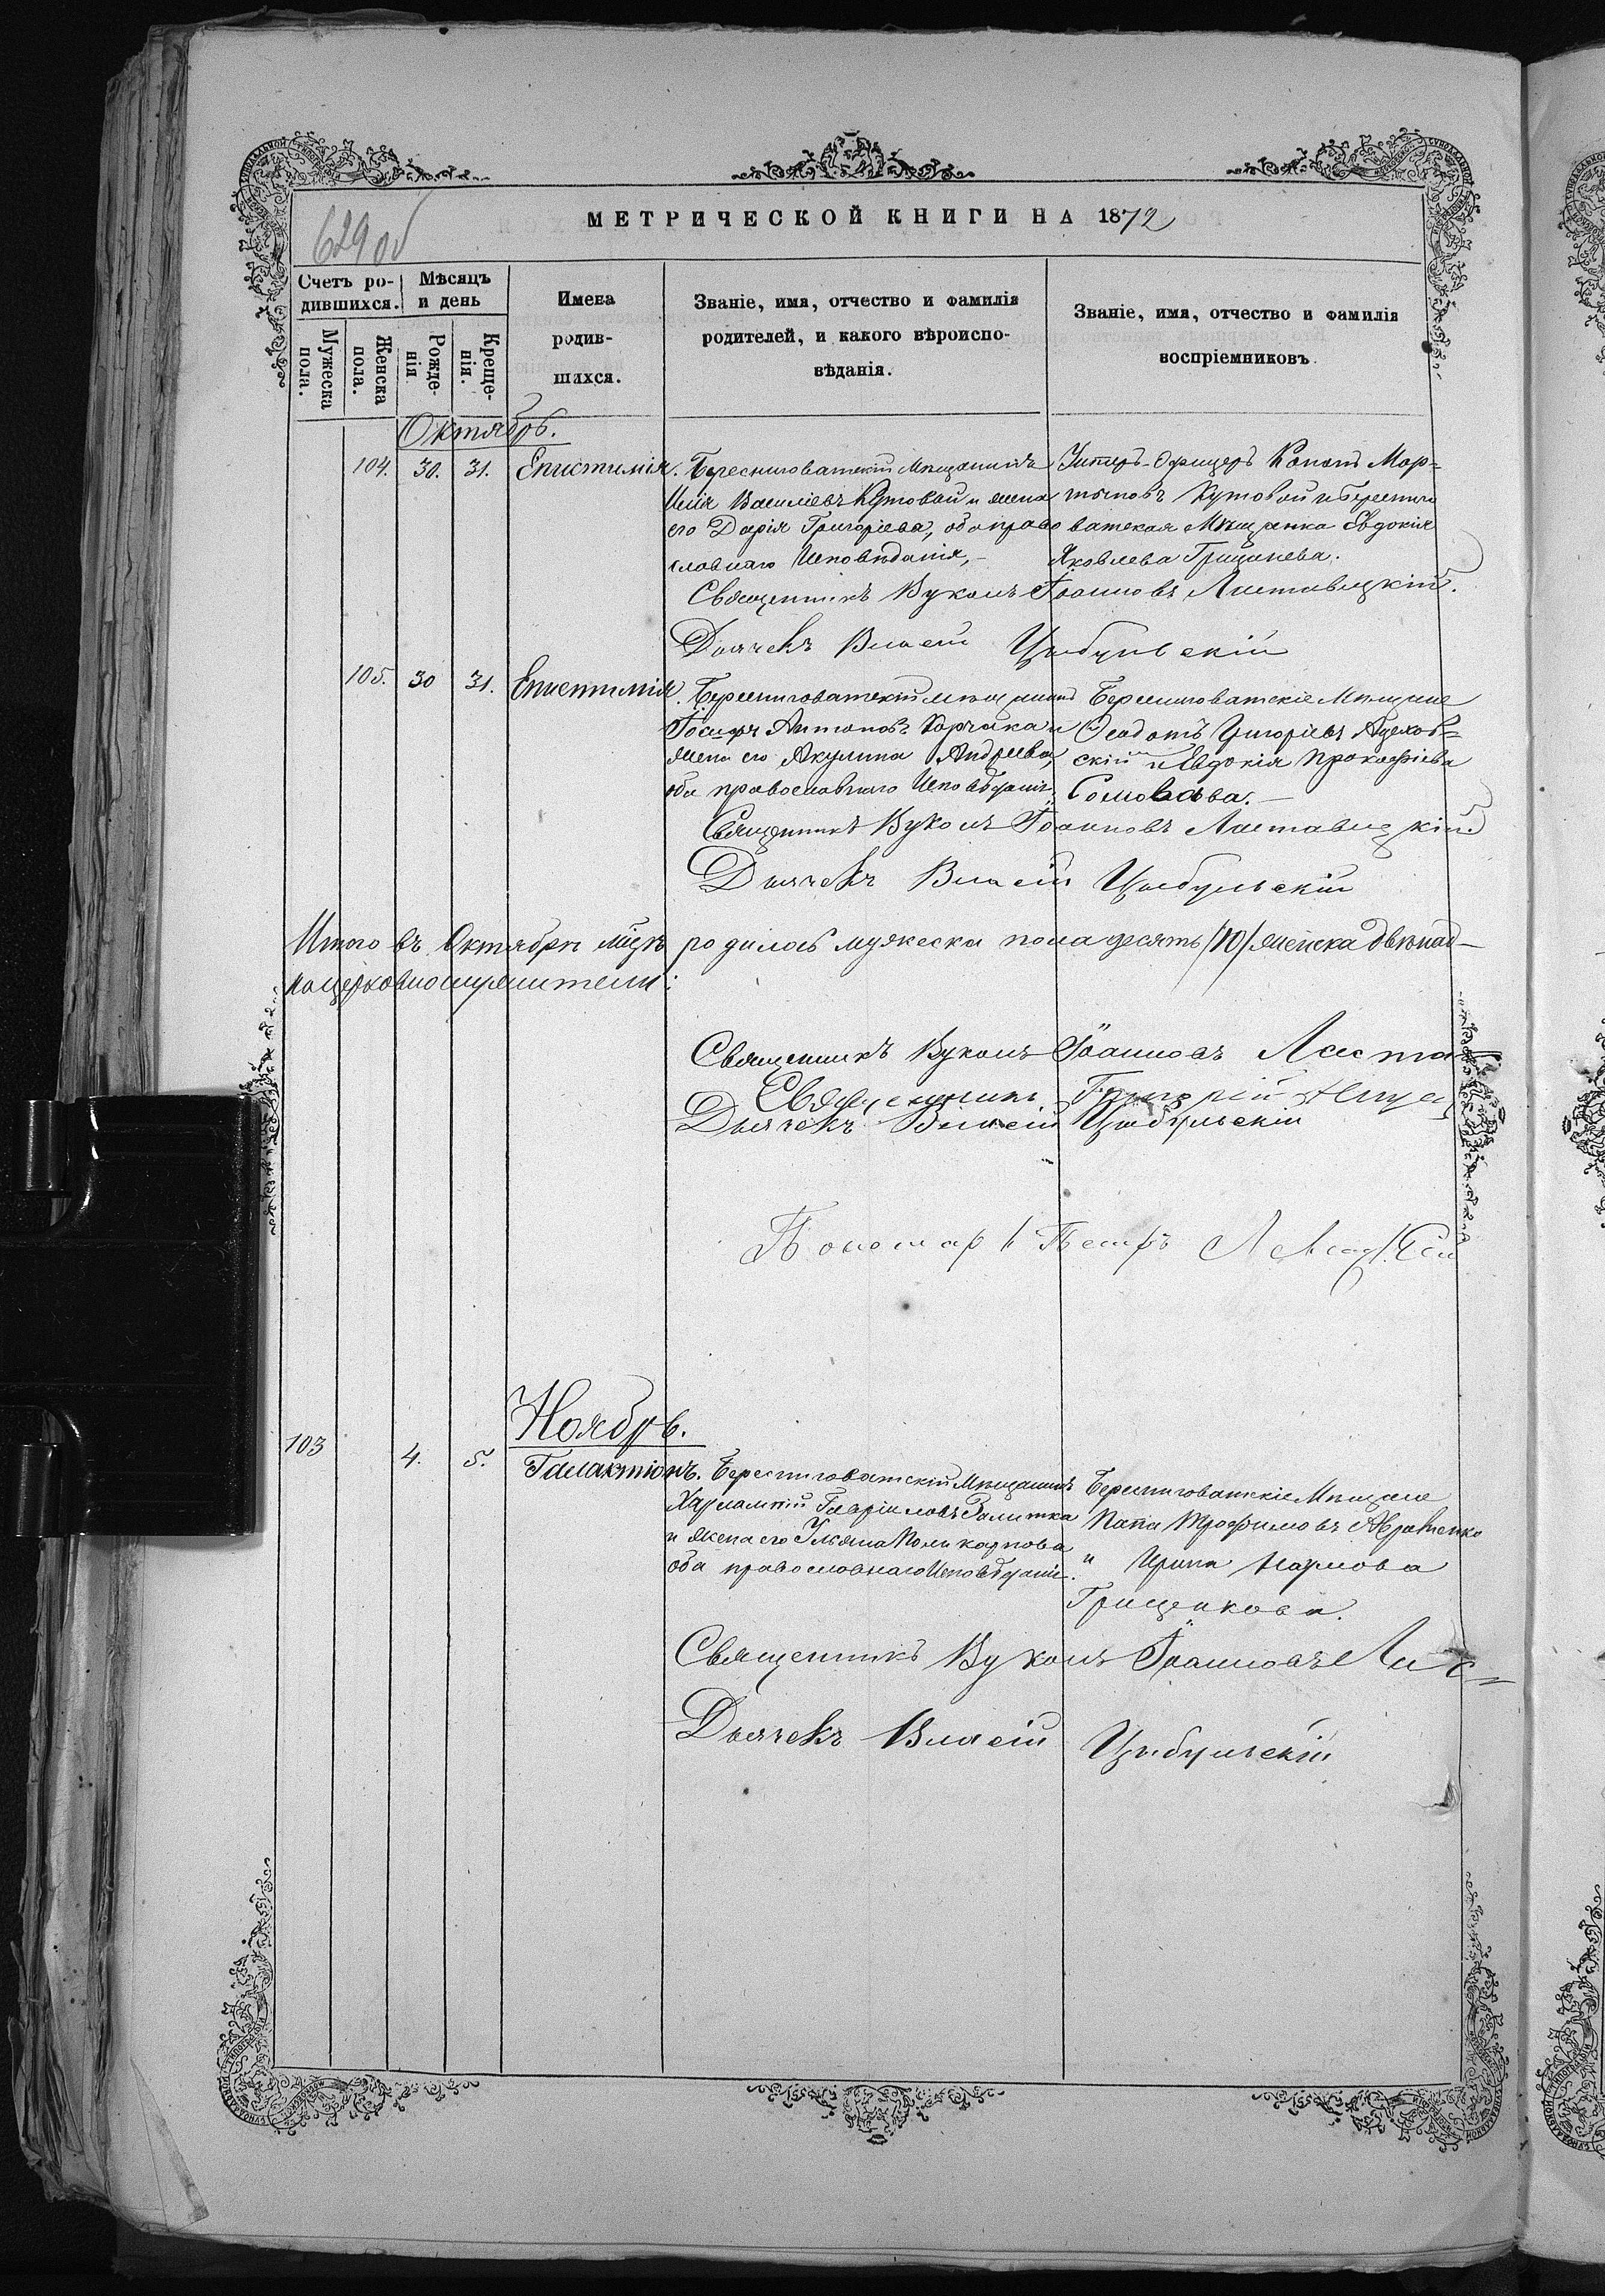 629 об
МЕТРИЧЕСКОЙ КНИГИ НА 1872
Счетъ ро-
дившихся.
Мѣсяцъ
и день
Имена
родив-
шихся.
Званіе, имя, отчество и фамилія
родителей, и какого вѣроиспо-
вѣданія.
Званіе, имя, отчество и фамилія
воспріемниковъ.
Мужеска
пола.
Женска
пола.
Рожде-
нія
Креще-
нія.
Октябрь.
104. 30. 31. Епистимія.
Береснеговатскій Мѣщанинъ
Василіевъ Кутовой и жена
его Дарія Григоріева, оба право
славнаго Исповѣданія,
Унтеръ-Офицеръ Кононъ Мар=
тыновъ Кутовой и Береснего
ватская Мѣщанка Евдокія
Яковлева Грицинева.
Священникъ Вуколъ Іоанновъ Листавецкій.
Дьячекъ Власій Цыбульскій
105. 30 31. Епистимія.
Береснеговатскій мѣщанинъ
Іосифъ Антоновъ Корчака и
жена его Акулина Андреева,
оба православнаго Исповѣданія.
Береснеговатскіе Мѣщане
Ѳеодотъ Григоріевъ
скій и Евдокія Прокофіева
Священникъ Вуколъ Іоанновъ Листавецкій.
Дьячекъ Власій Цыбульскій
Итого въ Октябрѣ мѣцѣ родилось мужеска пола десять /10/ женска двѣнад-
Священникъ Вуколъ Іоанновъ Листа=
Священникъ Григорій
Дьячекъ Власій Цыбульскій
Пономарь Петръ
Ноябрь.
103 4. 5. Галактіонъ.
Береснеговатскій Мѣщанинъ
Харлампій Гавріиловъ Залитка
и жена его Ульяна Поликарпова
оба православнаго Исповѣданія.
Береснеговатскіе Мѣщане
Папа Трофимовъ Авраменко
и Ирина Карпова
Грищенкова.
Священникъ Вуколъ Іоанновъ Лис=
Дьячекъ Власій Цыбульскій